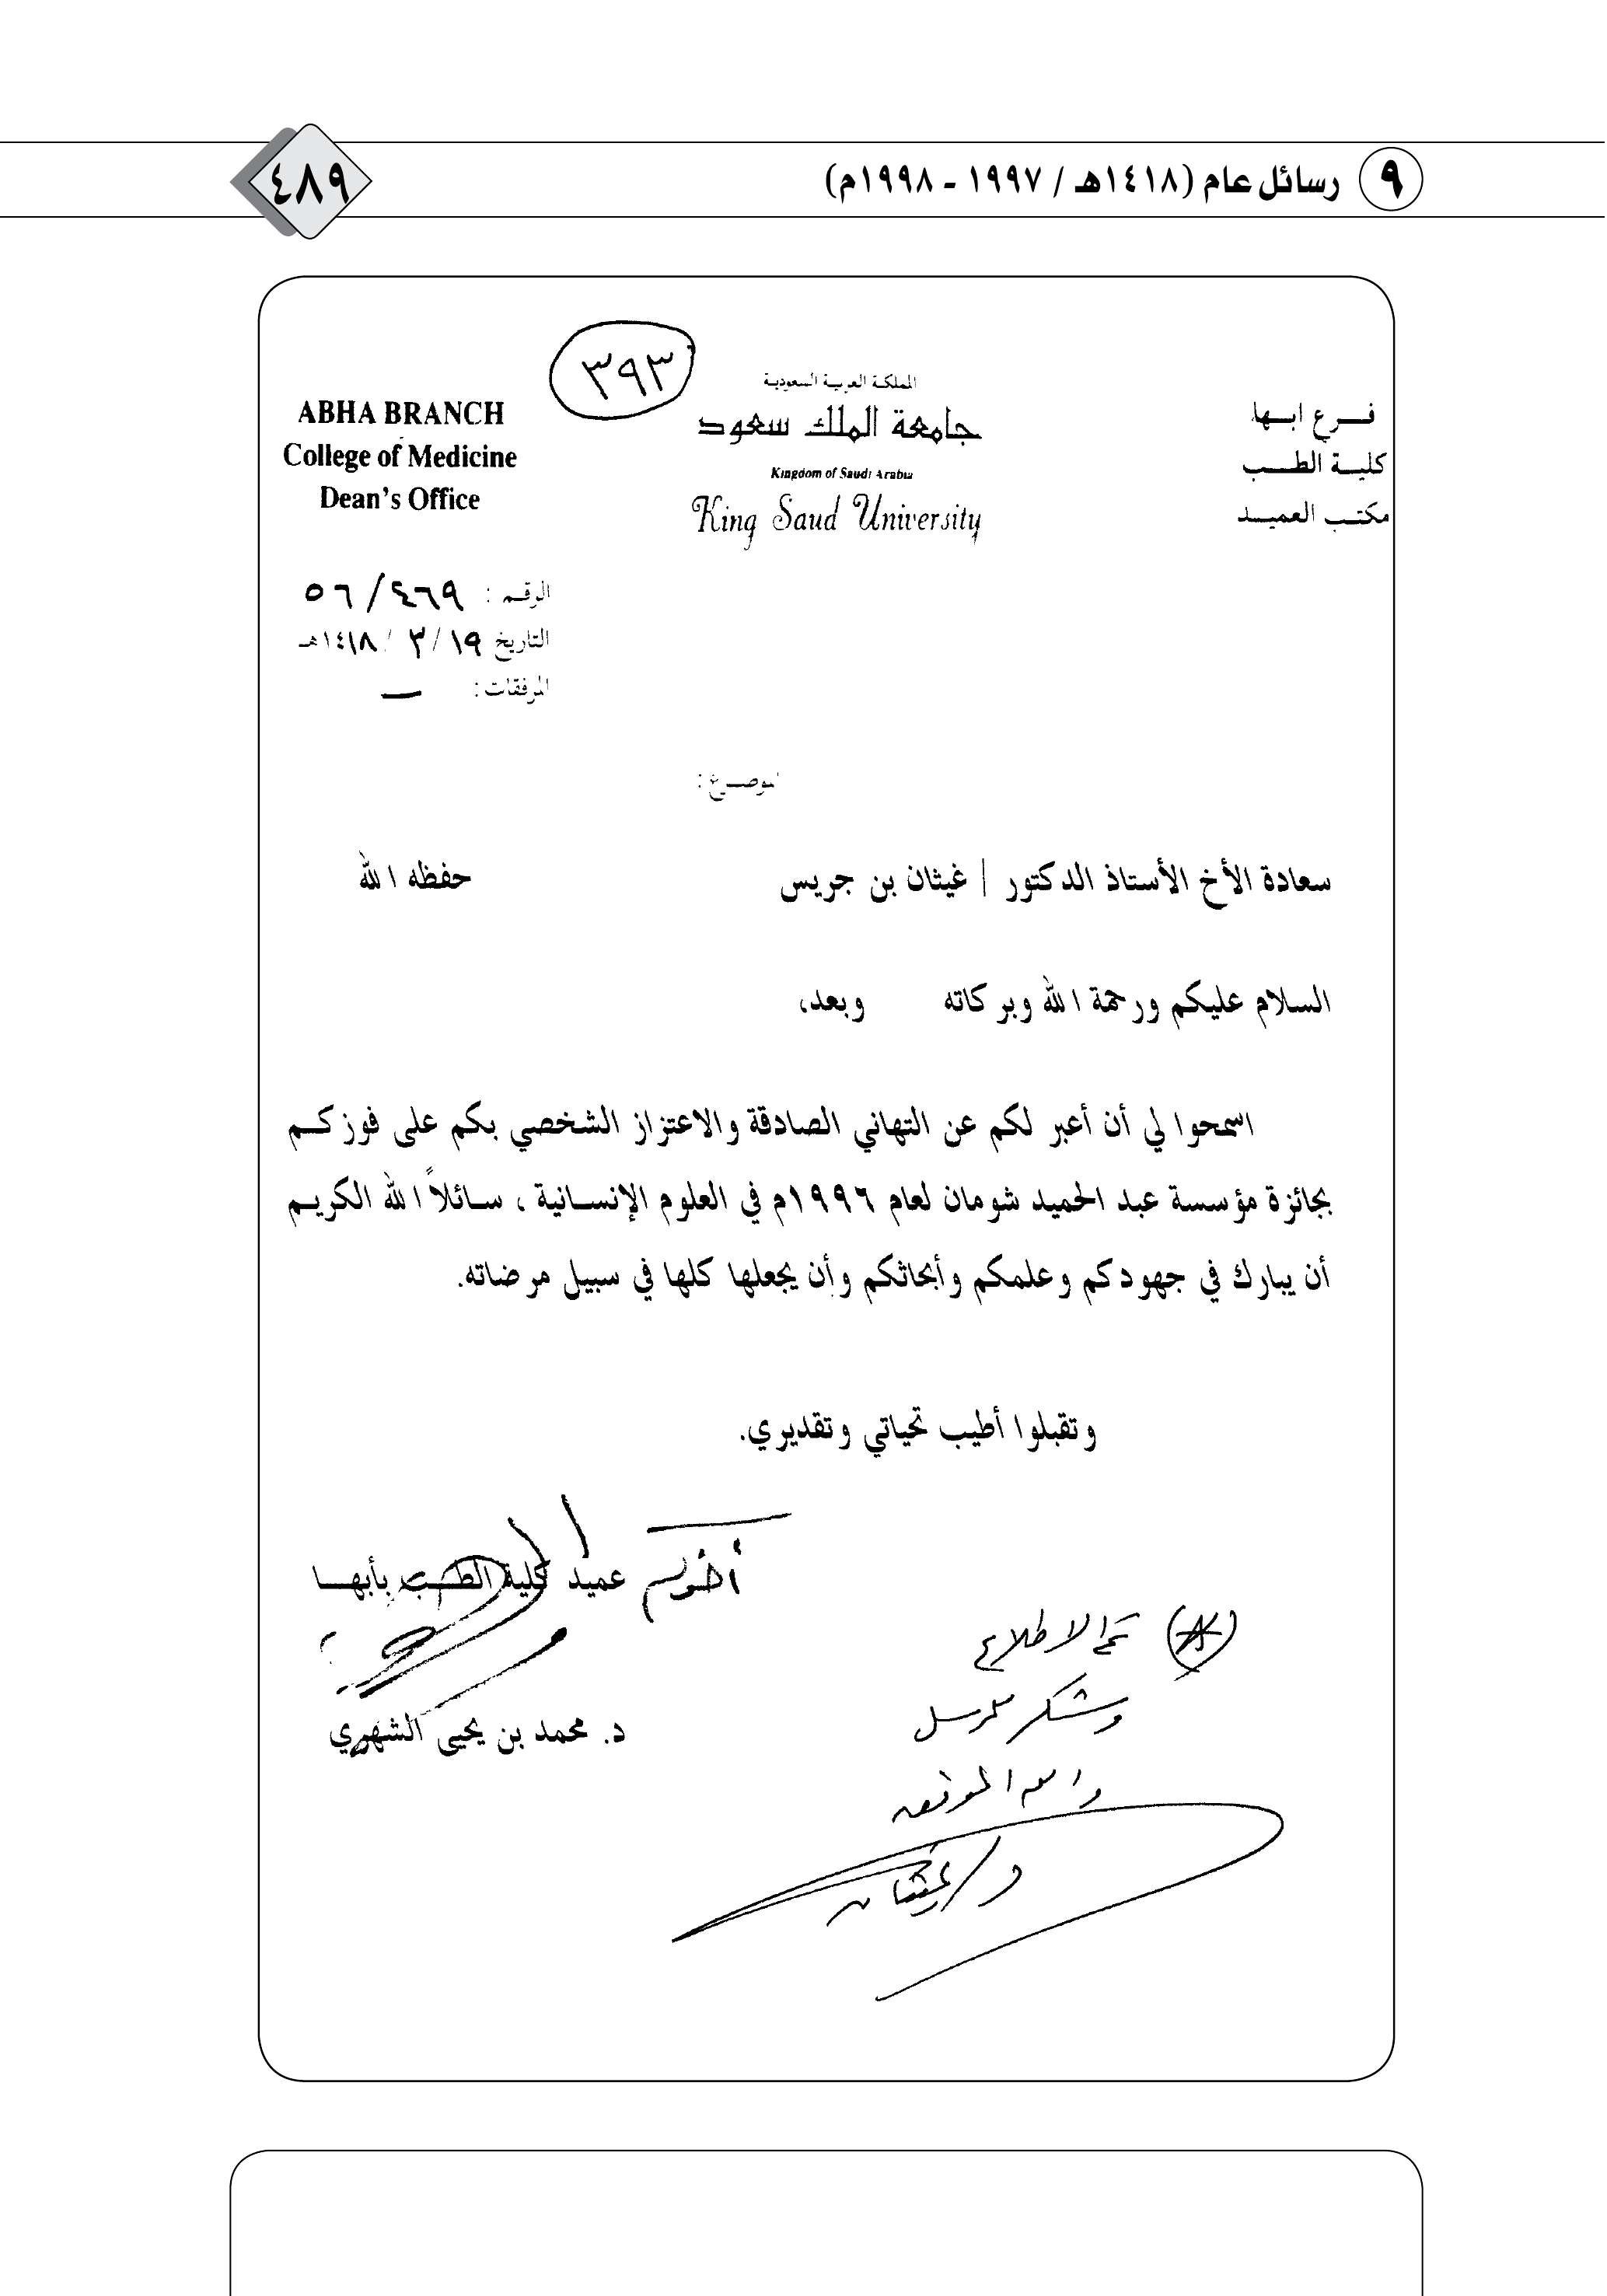 ٩ رسائل عام (١٤١٨هـ / ١٩٩٧ - ١٩٩٨م)
٤٨٩
٣٩٣
المملكة العربية السعودية
جامعة الملك سعود
Kingdom of Saudi Arabia
King Saud University
فرع ابها
كلية الطب
مكتب العميد
ABHA BRANCH
College of Medicine
Dean's Office
الرقم : ٥٦/٤٦٩
التاريخ ١٩/ ٣ / ١٤١٨هـ
المرفقات : —
الموضوع :
سعادة الأخ الأستاذ الدكتور / غيثان بن جريس حفظه الله
السلام عليكم ورحمة الله وبركاته وبعد،
اسمحوا لي أن أعبر لكم عن التهاني الصادقة والاعتزاز الشخصي بكم على فوزكم
بجائزة مؤسسة عبد الحميد شومان لعام ١٩٩٦م في العلوم الإنسانية ، سائلاً الله الكريم
أن يبارك في جهودكم وعلمكم وأبحاثكم وأن يجعلها كلها في سبيل مرضاته.
وتقبلوا أطيب تحياتي وتقديري.
أخوكم عميد كلية الطب بأبها
د. محمد بن يحيى الشهري
تم الاطلاع
وشكر للمرسل
والله الموفق
د/ غيثان